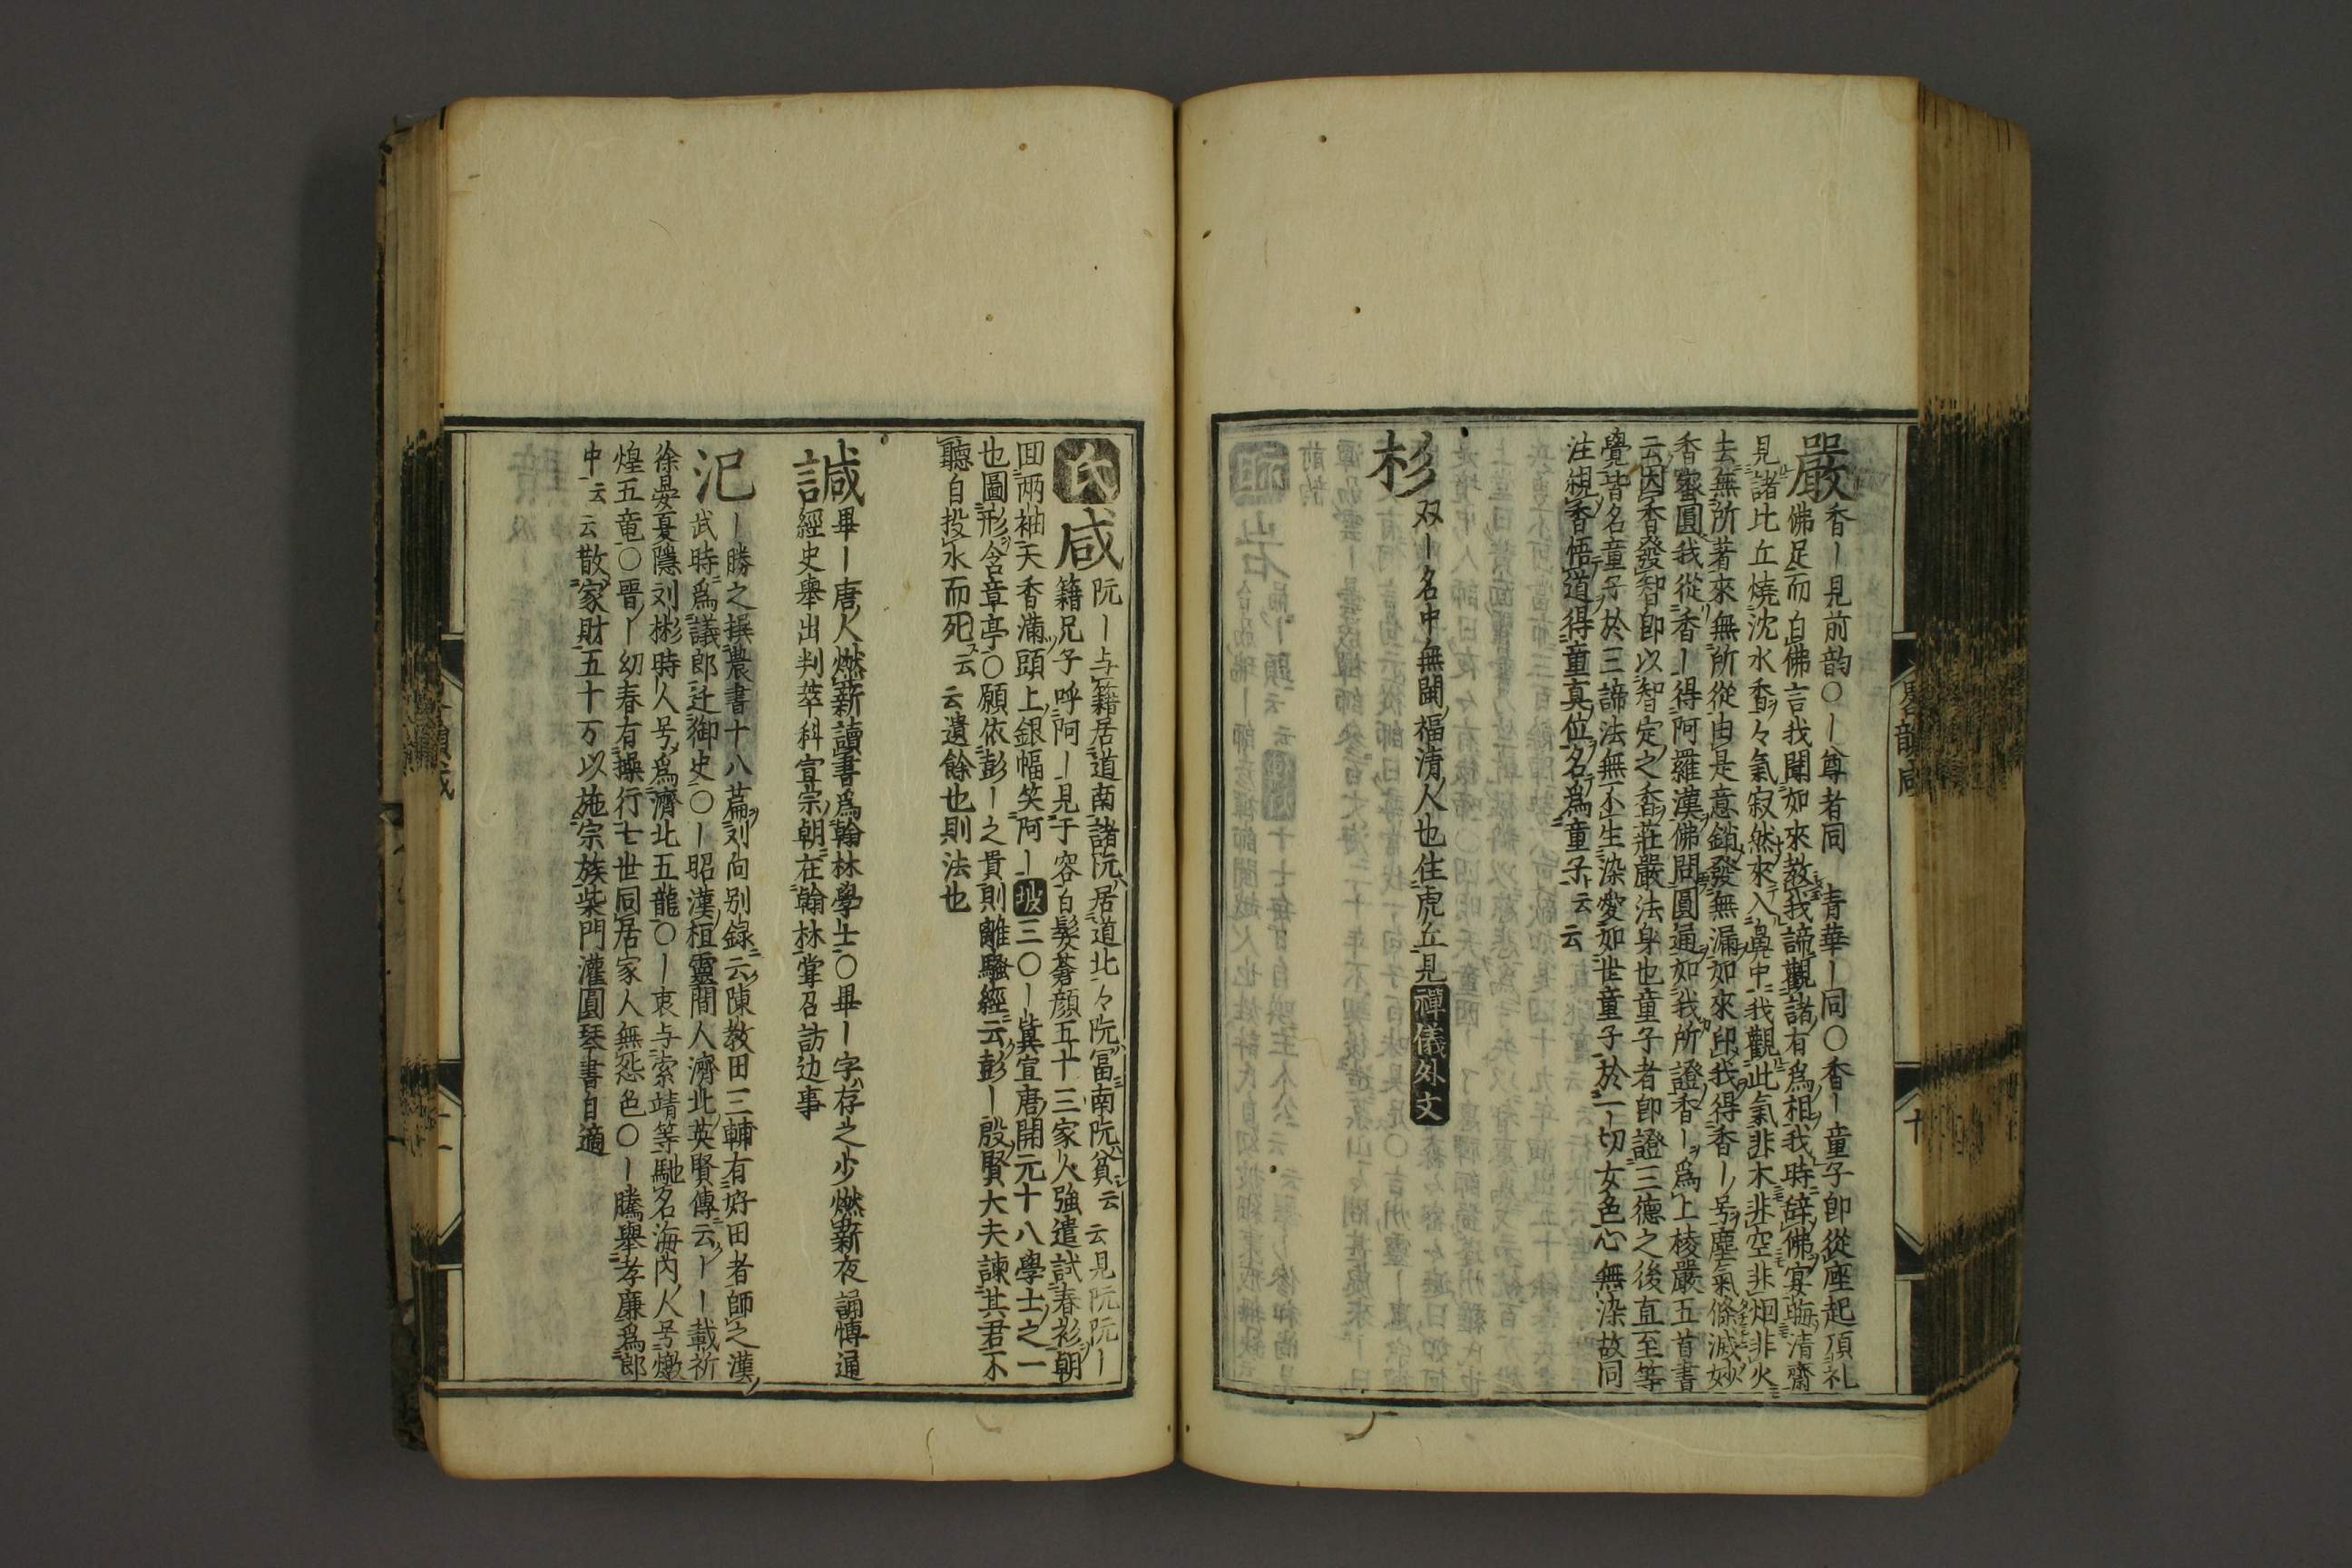 嚴香｜見前韵〇｜尊者同　青華｜同〇香｜童子卽從座起頂礼
佛足而白佛言我聞如來教我諦觀諸有爲相我時辞佛宴晦清齋
見諸比丘燒沈水香々氣寂然來入鼻中我觀此氣非木非空非烟非火
去無所著來無所從由是意銷發無漏如來印我得香｜号塵氣倐滅妙
香蜜圓我從香｜得阿羅漢佛問圓通如我所證香｜爲上棱嚴五首書
云因香發智卽以智定之香莊嚴法身也童子者卽證三德之後直至等
覺皆名童子於三諦法無不生染愛如世童子於一切女色心無染故同
注緄香悟道得童真位名爲童子云云
杉双｜名中無聞福清人也住虎丘見禪儀外文
氏
咸阮｜与籍居道南諸阮居道北々阮冨南阮貧云云見阮阮｜
籍兄子呼阿｜見于容白髮蒼顔五十三家人強遣試春衫朝
囬兩袖天香滿頭上銀幡笑阿｜坡三〇｜冀宣唐開元十八學士之一
也圖形含章亭〇願依彭｜之貴則離騷經云彭｜殷賢大夫諫其君不
聽自投水而死云云遺餘也則法也
諴畢｜唐人燃薪讀書爲翰林學士〇畢｜字存之少燃薪夜誦愽通
經史舉出判萃科宣宗朝在翰林掌召訪边事
氾｜勝之撰農書十八篇刘向別録云陳教田三輔有好田者師之漢
武時爲議郎迁御史〇｜昭漢桓靈間人濟北英賢傳云｜｜載祈
徐晏夏隱刘彬時人号爲濟北五龍〇｜衷与索靖等馳名海內人号燉
煌五竜〇晋｜幼春有操行七世同居家人無怨色〇｜騰舉孝廉爲郎
中云云散家財五十万以施宗族柴門灌園琴書自適
十